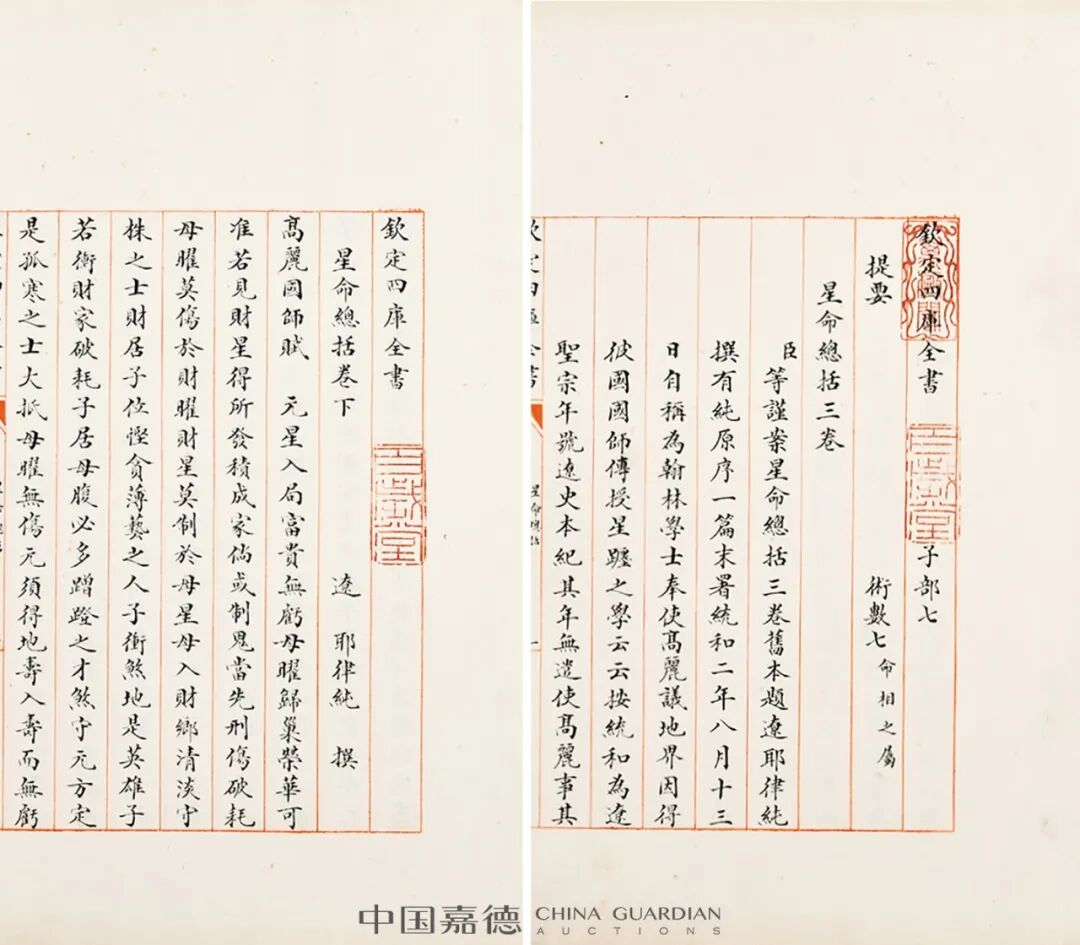 欽定四庫全書　子部七
提要　術數七命相之屬
星命總括三卷
臣等謹案星命總括三卷舊本題遼耶律純
撰有純原序一篇末署統和二年八月十三
日自稱為翰林學士奉使髙麗議地界因得
彼國國師傳授星躔之學云云按統和為遼
聖宗年號遼史本紀其年無遣使髙麗事其
欽定四庫全書
星命總括卷下
遼　耶律純　撰
髙麗國師賦　元星入局富貴無虧母曜歸巢榮華可
准若見財星得所發積成家倘或制恩當先刑傷破耗
母曜莫傷於財曜財星莫制於母星母入財鄉清淡守
株之士財居子位慳貪薄藝之人子衝煞地是英雄子
若衝財家破耗子居母腹必多蹭蹬之才煞守元方定
是孤寒之士大抵母曜無傷元須得地壽入壽而無虧
百忍堂
中国嘉德
CHINA GUARDIAN
AUCTIONS